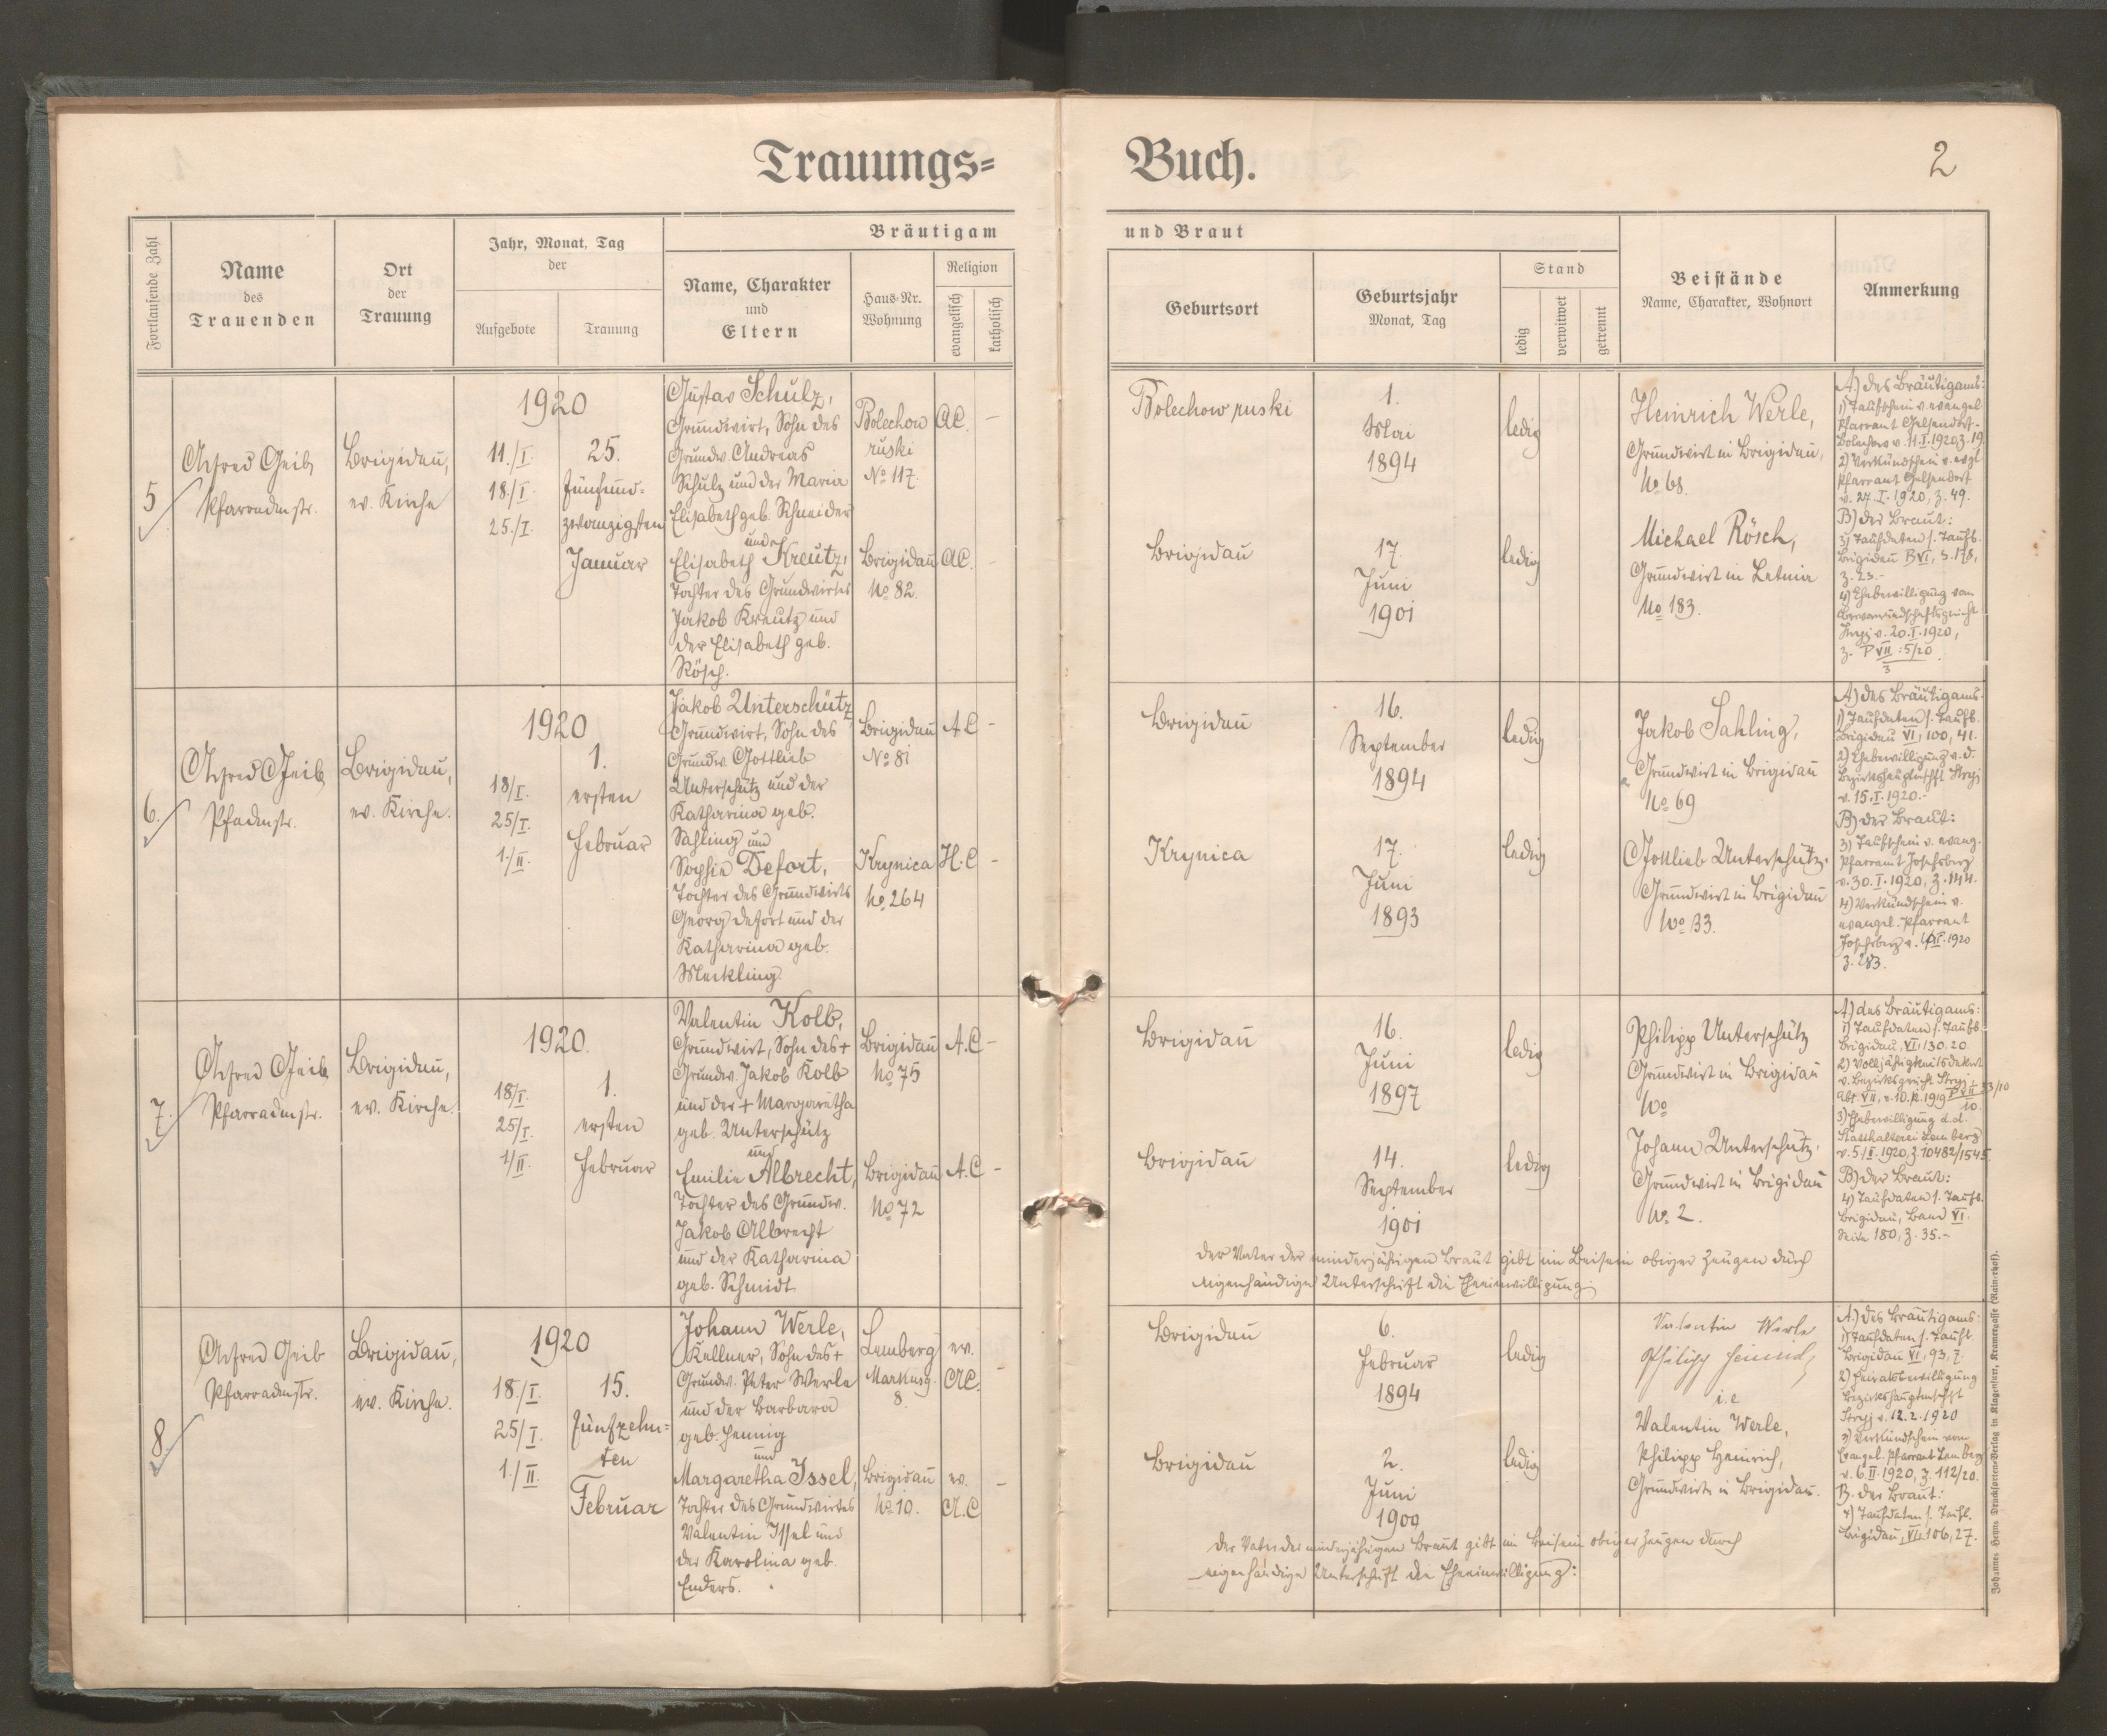 Trauungs=
Buch.
2
Fortlaufende Zahl
Name
des
Trauenden
Ort
der
Trauung
Jahr, Monat, Tag
der
Aufgebote
Trauung
Bräutigam
Name, Charakter
und
Eltern
Haus-Nr.
Wohnung
Religion
evangelisch
katholisch
und Braut
Geburtsort
Geburtsjahr
Monat, Tag
Stand
ledig
verwitwet
getrennt
Beistände
Name, Charakter, Wohnort
Anmerkung
5
Alfred Geib
Pfarradmstr.
Brigidau,
ev. Kirche
1920
11./I.
18./I.
25./I.
25.
Fünfund-
zwanzigsten
Januar
Gustav Schulz,
Grundwirt, Sohn des
Grundw. Andreas
Schulz und der Maria
Elisabeth geb. Schneider
und
Elisabeth Kreutz,
Tochter des Grundwirtes
Jakob Kreutz und
der Elisabeth geb.
Rösch.
Bolechow
ruski
No 117.
AC. -
Brigidau
No 82.
AC. -
Bolechow ruski
1.
Mai
1894
ledig
Brigidau
17.
Juni
1901
ledig
Heinrich Werle,
Grundwirt in Brigidau,
No 68.
Michael Rösch,
Grundwirt in Letnia
No 183.
A.) des Bräutigams:
1) Taufschein v. evangel.
Pfarramt Gelsendorf-
Bolechow v. 11.I.1920 z. 19.
2) Verkündschein v. evgl.
Pfarramt Gelsendorf
v. 27.I.1920, z. 49.
B) der Braut:
3) Taufdaten s. Taufb.
Brigidau B VI, S. 178,
z. 23.-
4) Ehebewilligung vom
Obervormundschaftsgericht
Stryj v. 20.I.1920,
z. P VII : 5/20
3
6.
Alfred Geib
Pfadmstr.
Brigidau,
ev. Kirche.
1920
18/I.
25/I.
1./II.
1.
ersten
Februar
Jakob Unterschütz
Grundwirt, Sohn des
Grundw. Gottlieb
Unterschütz und der
Katharina geb.
Sahling und
Sophia Defort,
Tochter des Grundwirts
Georg Defort und der
Katharina geb.
Meckling.
Brigidau
No 81
A.C -
Krynica
No 264
H.C -
Brigidau
16.
September
1894
ledig
Krynica
17.
Juni
1893
ledig
Jakob Sahling,
Grundwirt in Brigidau
No 69
Gottlieb Unterschütz.
Grundwirt in Brigidau
No 33.
A) des Bräutigams.
1) Taufdaten s. Taufb.
Brigidau VI, 100, 41.
2) Ehebewilligung v. d.
Bezirkshauptmschft Stryj
v. 15.I.1920.-
B) der Braut:
3) Taufschein v. evang.
Pfarramt Josefsberg
v. 30.I.1920, z. 144.
4) Verkündschein v.
evangel. Pfarramt
Josefsberg v. 1920
z. 283.
7.
Alfred Geib
Pfarradmstr.
Brigidau,
ev. Kirche.
1920.
18/I.
25/I.
1/II.
1.
ersten
Februar
Valentin Kolb,
Grundwirt, Sohn des +
Grundw. Jakob Kolb
und der + Margaretha
geb. Unterschütz
und
Emilie Albrecht,
Tochter des Grundw.
Jakob Albrecht
und der Katharina
geb. Schmidt.
Brigidau
No 75
A.C -
Brigidau
No 72
A.C -
Brigidau
16.
Juni
1897
ledig
Brigidau
14.
September
1901
ledig
Philipp Unterschütz
Grundwirt in Brigidau
No
Johann Unterschütz,
Grundwirt in Brigidau
No. 2.
A) des Bräutigams:
1) Taufdaten s. Taufb.
Brigidau, VI, 130. 20
2) Volljährigkeitsdekret
v. Bezirksgericht Stryj
Abt. VII, v. 10. 1919
3) Ehebewilligung d. d.
Statthalterei Lemberg
v. 5/I. 1920, z. 10482/1545.
B) der Braut:
4) Taufdaten s. Taufb.
Brigidau, Band VI.
Seite 180, z. 35.-
Der Vater der minderjährigen Braut gibt im Beisein obiger Zeugen durch
eigenhändige Unterschrift die Eheeinwilligung
8.
Alfred Geib
Pfarradmstr.
Brigidau,
ev. Kirche.
1920
18./I.
25/I.
1./II.
15.
Fünfzehn=
ten
Februar
Johann Werle,
Kellner, Sohn des +
Grundw. Peter Werle
und der Barbara
geb. Hennig
und
Margaretha Issel,
Tochter des Grundwirtes
Valentin Issel und
der Karolina geb.
Enders.
Lemberg
Markusg.
8.
ev.
AC. -
Brigidau
No 10.
ev. -
A.C
Brigidau
6.
Februar
1894
ledig
Brigidau
2.
Juni
1900
ledig
Valentin Werle
Philipp Heinrich
i.e
Valentin Werle,
Philipp Heinrich,
Grundwirte in Brigidau.
A.) des Bräutigams:
1) Taufdaten s. Taufb.
Brigidau VI, 93, 7.
2) Heiratsbewilligung
Bezirkshauptmschft
Stryj v. 12.2.1920
3) Verkündschein vom
Evangel. Pfarramt Lemberg
v. 6.II.1920, z. 112/20.
B. der Braut:
4) Taufdaten s. Taufb.
Brigidau, VI, 106, 27.
Der Vater der minderjährigen Braut gibt im Beisein obiger Zeugen durch
eigenhändige Unterschrift die Eheeinwilligung:
Johannes Heyns Drucksorten-Verlag in Klagenfurt, Kramergasse (Rainerhof).